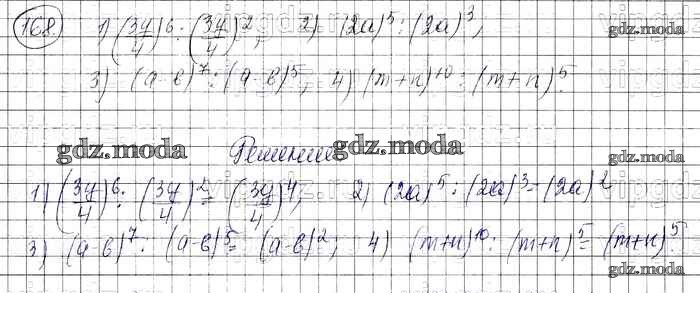 168. 1) (3y/4)^6 : (3y/4)^2, 2) (2a)^5 : (2a)^3,
gdz.moda
3) (a-b)^7 : (a-b)^5, 4) (m+n)^10 : (m+n)^5.
gdz.moda
gdz.moda Решение gdz.moda
gdz.moda
1) (3y/4)^6 : (3y/4)^2 = (3y/4)^4, 2) (2a)^5 : (2a)^3 = (2a)^2
gdz.moda
3) (a-b)^7 : (a-b)^5 = (a-b)^2, 4) (m+n)^10 : (m+n)^5 = (m+n)^5.
gdz.moda